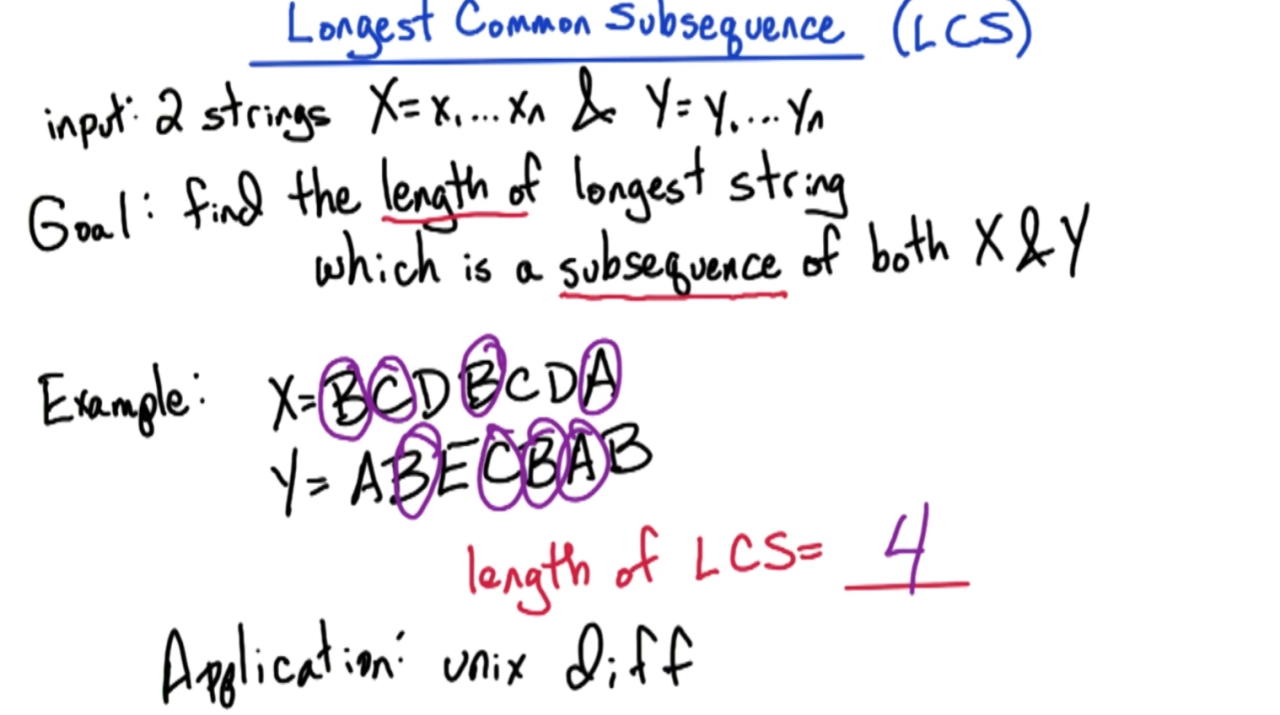 Longest Common Subsequence (LCS)
input: 2 strings X=x₁...xₙ & Y=y₁...yₙ
Goal: find the length of longest string
which is a subsequence of both X & Y
Example: X=BCDBCDA
Y=ABECBAB
length of LCS= 4
Application: unix diff